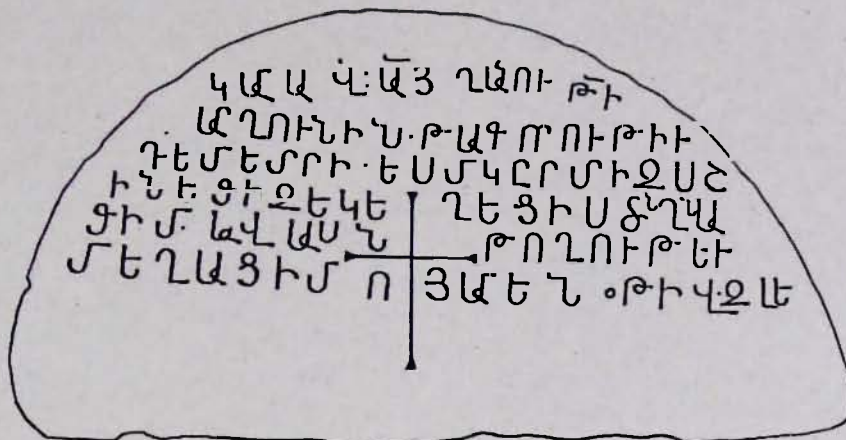 ԿԱՄԱ Վ: ԱՅ ՂԱՈՒ ԹԻ
ՂՈՒՆԻՆ.ԹԱԳՈՐՈՒԹԻՒ
ԴԵՄԵՄՐԻ.ԵՍՄԿԸՐՄԻՋՍՇ
ԻՆԵՑԻԶԵԿԵ ՂԵՑԻՍ
ՑԻՄ. ԹՈՂՈՒԹԵՒ
ՄԵՂԱՑԻՄ Ո ՅԱՄԵՆ ԹԻՎ.ՋԼԵ